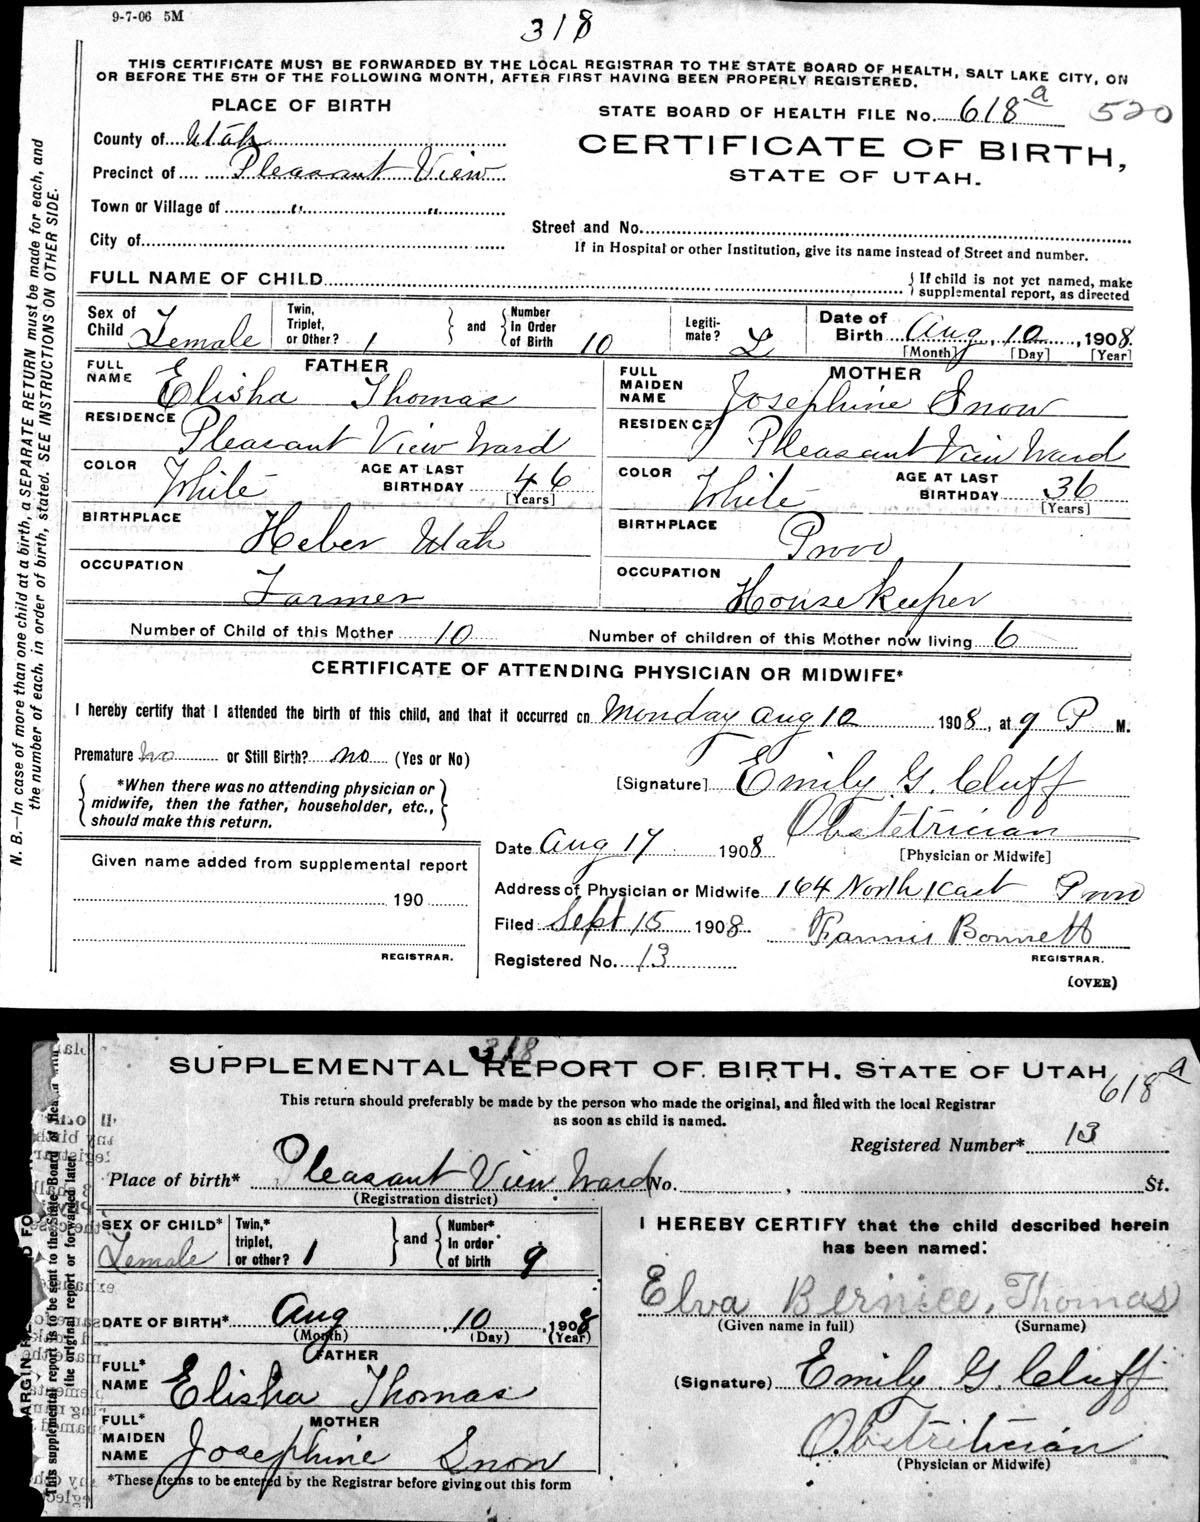 9-7-06 5M
318
THIS CERTIFICATE MUST BE FORWARDED BY THE LOCAL REGISTRAR TO THE STATE BOARD OF HEALTH, SALT LAKE CITY, ON
OR BEFORE THE 5TH OF THE FOLLOWING MONTH, AFTER FIRST HAVING BEEN PROPERLY REGISTERED.
PLACE OF BIRTH
STATE BOARD OF HEALTH FILE No. 618 a 520
County of Utah
CERTIFICATE OF BIRTH,
Precinct of Pleasant View
STATE OF UTAH.
Town or Village of " "
Street and No.
City of
If in Hospital or other Institution, give its name instead of Street and number.
FULL NAME OF CHILD
If child is not yet named, make
supplemental report, as directed
Sex of Child Female
Twin, Triplet, or Other? 1
and
Number In Order of Birth 10
Legiti-mate? L
Date of Birth Aug. 10, 1908.
[Month] [Day] [Year]
FATHER
FULL NAME Elisha Thomas
RESIDENCE Pleasant View Ward
COLOR White AGE AT LAST BIRTHDAY 46
[Years]
BIRTHPLACE Heber Utah
OCCUPATION Farmer
MOTHER
FULL MAIDEN NAME Josephine Snow
RESIDENCE Pleasant View Ward
COLOR White AGE AT LAST BIRTHDAY 36
[Years]
BIRTHPLACE Provo
OCCUPATION Housekeeper
Number of Child of this Mother 10 Number of children of this Mother now living 6
CERTIFICATE OF ATTENDING PHYSICIAN OR MIDWIFE*
I hereby certify that I attended the birth of this child, and that it occurred on Monday Aug 10 1908, at 9 P M.
Premature no or Still Birth? no (Yes or No)
*When there was no attending physician or
midwife, then the father, householder, etc.,
should make this return.
[Signature] Emily G. Cluff
Obstetrician
[Physician or Midwife]
Date Aug 17 1908
Given name added from supplemental report
190
REGISTRAR.
Address of Physician or Midwife 164 North 1 East Provo
Filed Sept 15 1908 Fannie Bonnett
REGISTRAR.
Registered No. 13
(OVER)
N. B.—In case of more than one child at a birth, a SEPARATE RETURN must be made for each, and
the number of each, in order of birth, stated. SEE INSTRUCTIONS ON OTHER SIDE.
318
SUPPLEMENTAL REPORT OF BIRTH, STATE OF UTAH
618 a
This return should preferably be made by the person who made the original, and filed with the local Registrar
as soon as child is named.
Registered Number* 13
Place of birth* Pleasant View Ward No. , St.
(Registration district)
SEX OF CHILD* Female
Twin,* triplet, or other? 1
and
Number* In order of birth 9
DATE OF BIRTH* Aug 10, 1908
(Month) (Day) (Year)
FATHER
FULL* NAME Elisha Thomas
MOTHER
FULL* MAIDEN NAME Josephine Snow
*These items to be entered by the Registrar before giving out this form
I HEREBY CERTIFY that the child described herein
has been named:
Elva Bernice. Thomas
(Given name in full) (Surname)
(Signature) Emily G. Cluff
Obstetritician
(Physician or Midwife)
This supplemental report is to be sent to the State Board of
the original report or forwarded later.